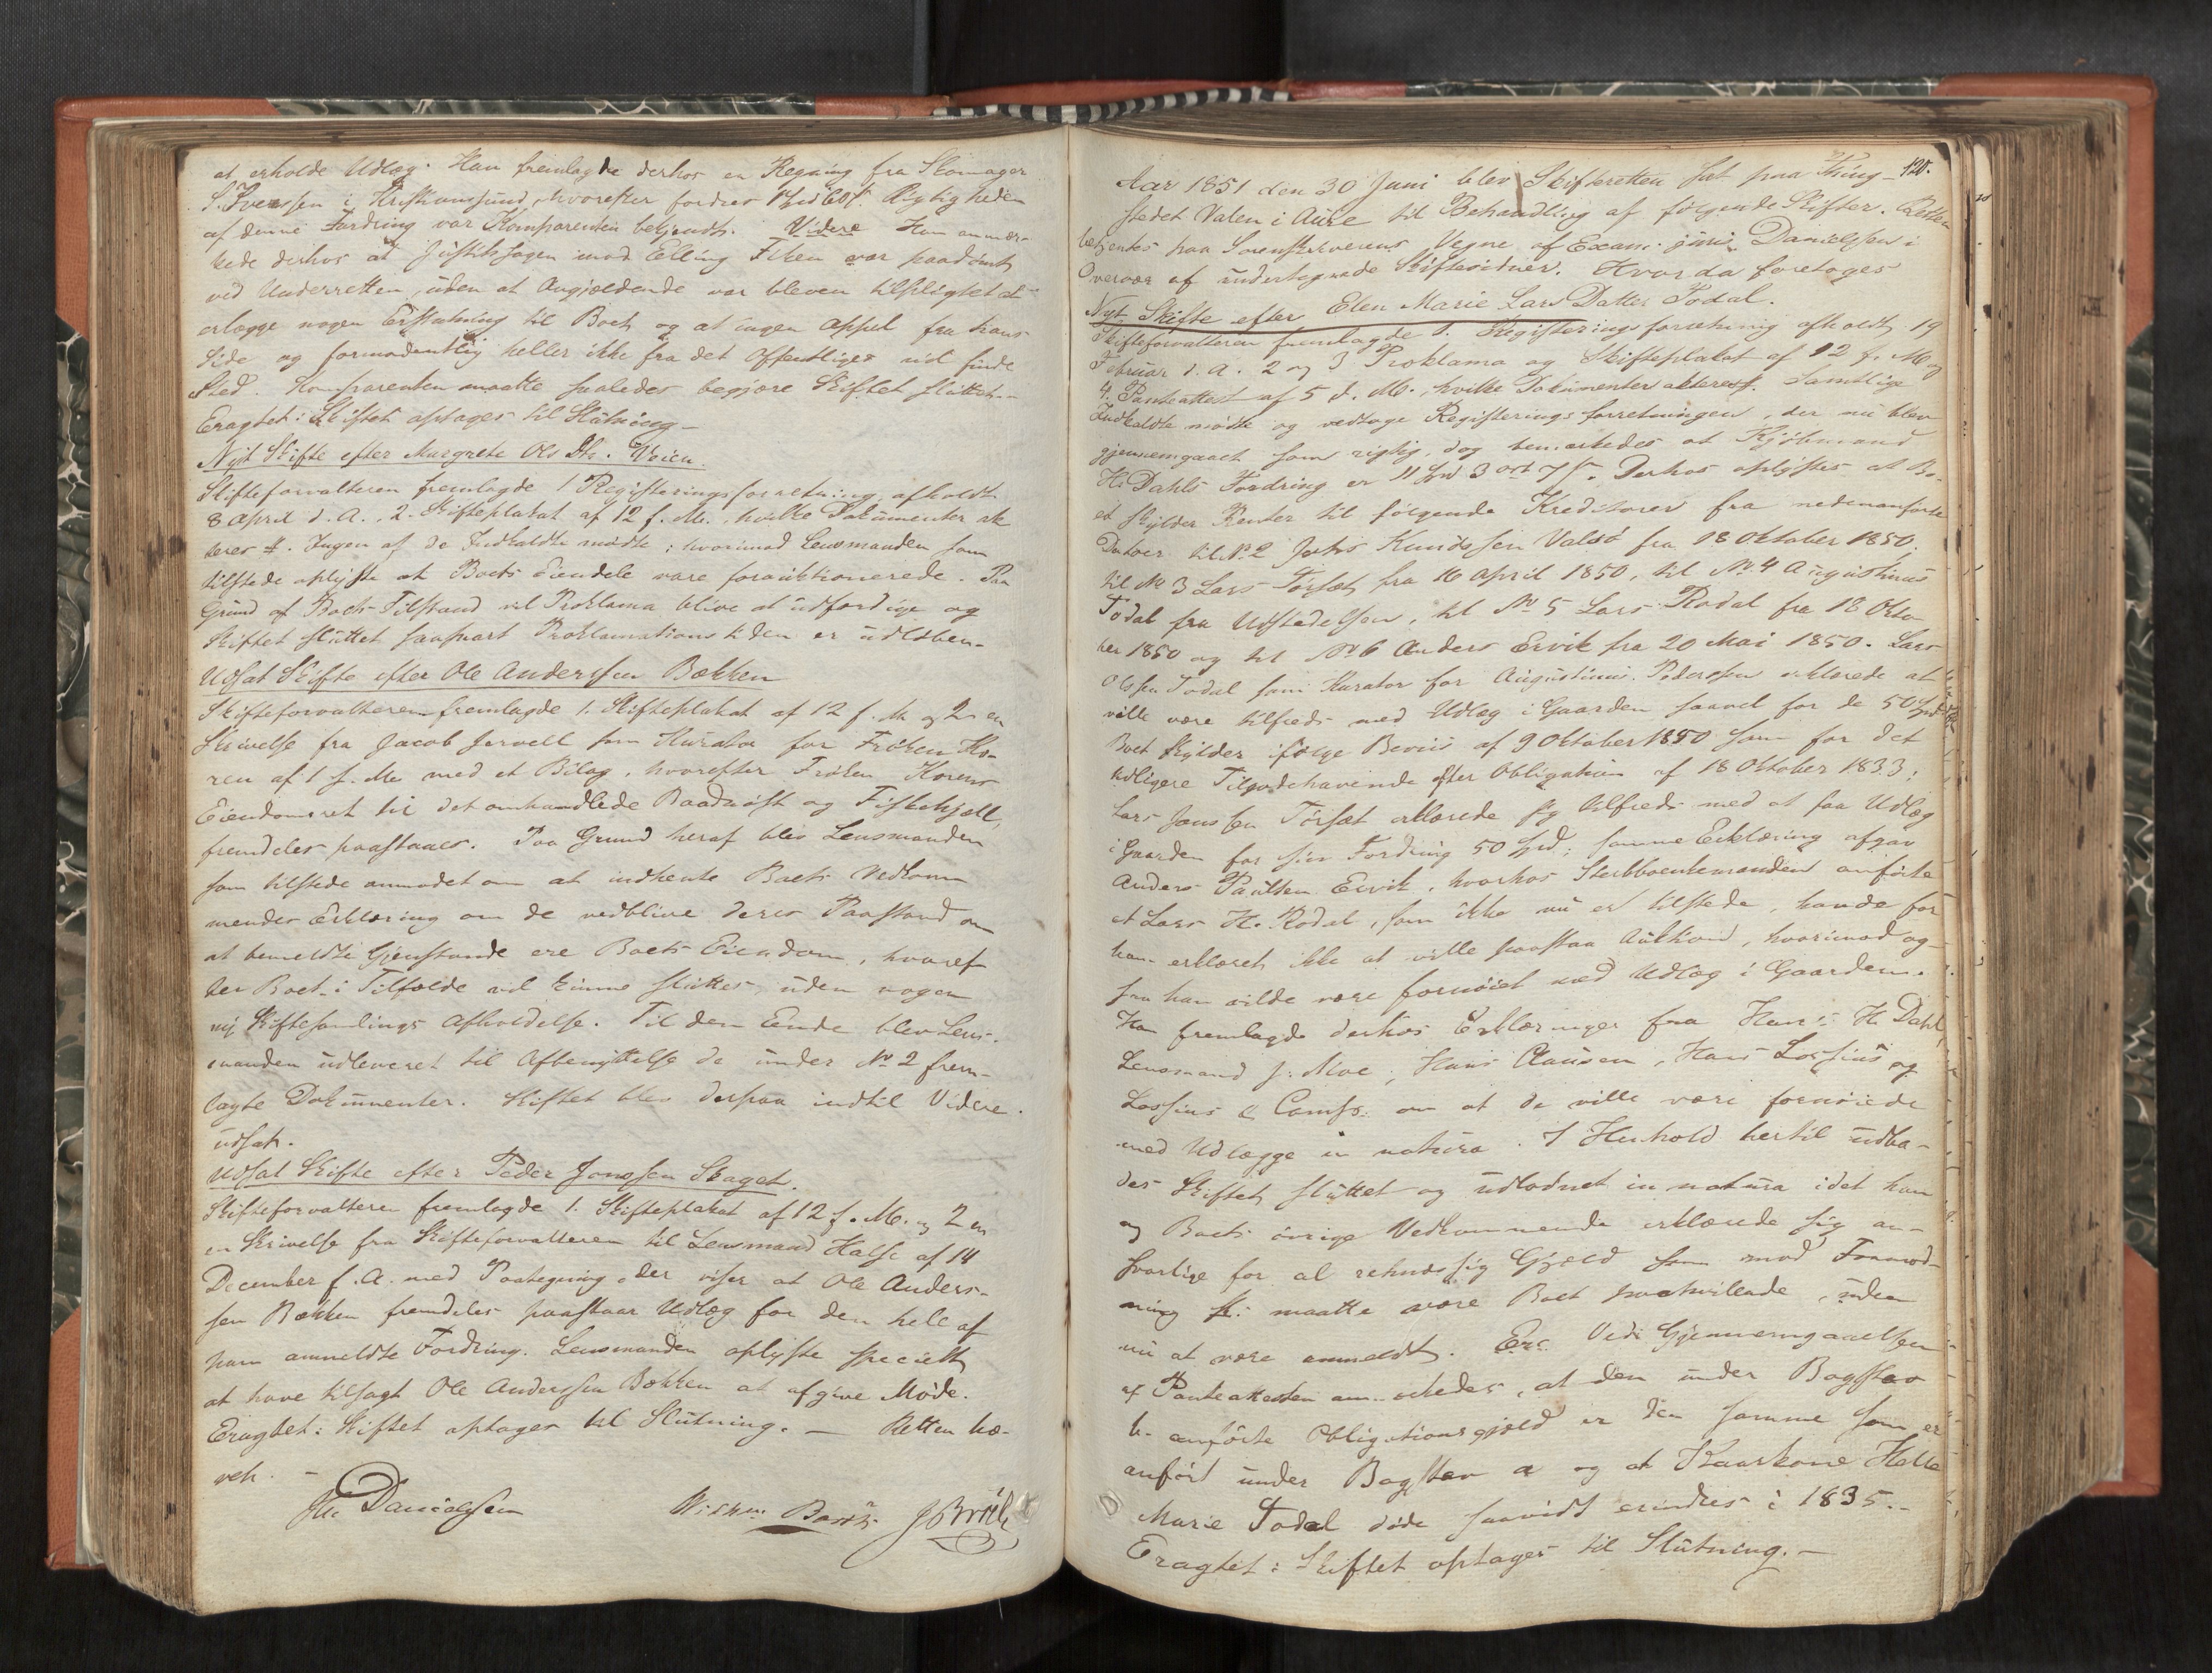 at erholde Udlæg. Han fremlagde derhos en Regning fra Skomager
S. Iverssen i Kristiansund, hvorefter fordres Rigtigheden
af denne Fordring var Komparenten bekjendt. Videre Han anmær-
kede derhos at Justitssagen imod Elling var paadømt
ved Underretten, uden at Angjældende var bleven tilpligtet at
erlægge nogen Erstatning til Boet og at ingen Appel fra hans
Side og formodentlig heller ikke fra det Offentliges vil finde
Sted. Komparenten maatte saaledes begjære Skiftet sluttet.-
Eragtet: Skiftet optages til Slutning -
Nyt Skifte efter Margrete Ols Dtr. Veien.
Skifteforvalteren fremlagde 1 Registeringsforretning afholdt
8 April d. A., 2. Skifteplakat af 12 f. M., hvilke Dokumenter ak
teres. Ingen af de Indkaldte mødte; hvorimod Lensmanden som
tilstede oplyste at Boets Eiendele vare forauktionerede. Paa
Grund af Boets Tilstand vil Proklama blive at udfærdige og
Skiftet sluttet saasnart Proklamationstiden er udløben.
Udsat Skifte efter Ole Anderssen Bækken
Skifteforvalteren fremlagde 1. Skifteplakat af 12 f. M. og 2 en
Skrivelse fra Jacob Jervell som Kurator for Frøken Ko-
ren af 1 f. M. med et Bilag, hvorefter Frøken Korens
Eiendomsret til det omhandlede Baadnøst og Fiskehjell
fremdeles paastaaes. Paa Grund heraf blev Lensmanden
som tilstede anmodet om at indhente Boets Vedkom
mendes Erklæring om de vedblive deres Paastand om
at bemeldte Gjenstande ere Boets Eiendom, hvoref
ter Boet i Tilfælde vil kunne sluttes uden nogen
ny Skiftesamlings Afholdelse. Til den Ende blev Lens-
manden udleveret til Afbenyttelse de under No 2 frem-
lagte Dokumenter. Skiftet blev derpaa indtil Videre
udsat.
Udsat Skifte efter Peder Jonssen Skaget.
Skifteforvalteren fremlagde 1. Skifteplakat af 12 f. M. og 2 en
en Skrivelse fra Skifteforvalteren til Lensmand Halse af 14
December f. A. med Paategning, der viser at Ole Anders-
sen Bækken fremdeles paastaar Udlæg for den hele af
ham anmeldte Fordring. Lensmanden oplyste specielt
at have tilsagt Ole Anderssen Bækken at afgive Møde.
Eragtet: Skiftet optages til Slutning. - Retten hæ-
vet. -
Danielssen J Brüch
120.
Aar 1851 den 30 Juni blev Skifteretten sat paa Thing-
stedet Valen i Aure til Behandling af følgende Skifter. Retten
betjentes paa Sorenskriverens Vegne af Exam: juris Danielssen i
Overvær af undertegnede Skiftevidner. Hvorda foretoges
Nyt Skifte efter Elen Marie Lars Datter Todal.
Skifteforvalteren fremlagde 1. Registeringsforretning afholdt 19
Februar d. A. 2 og 3 Proklama og Skifteplakat af 12 f. M. og
4. Panteattest af 5 d. M., hvilke Dokumenter akteres. Samtlige
Indkaldte mødte og vedtoge Registeringsforretningen, der nu blev
gjennemgaaet som rigtig, dog bemærkedes at Kjøbmand
H. Dahls Fordring er 11 Spd 3 ort 7 s. Derhos oplystes at Bo-
et skylder Renter til følgende Kreditorer fra nedenanførte
Datoer til No 2 Johs Knudssen Valsø fra 18 Oktober 1850,
til No 3 Lars Torsæt fra 16 April 1850, til No. 4 Augustinus
Todal fra Udstedelsen, til No 5 Lars Rodal fra 18 Okto-
ber 1850 og til No 6 Anders Ervik fra 20 Mai 1850. Lars
Olssen Todal som Kurator for Augustinus Pederssen erklærede at
ville være tilfreds med Udlæg i Gaarden saavel for de 50 Spd
Boet skylder ifølge Beviis af 9 Oktober 1850 som for det
tidligere Tilgodehavende efter Obligation af 18 Oktober 1833;
Lars Janssen Torsæt erklærede sig tilfreds med at faa Udlæg
i Gaarden for sin Fordring 50 Spd; samme Erklæring afgav
Anders Paulsen Ervik, hvorhos Sterbboenkemanden anførte
at Lars H. Rodal, som ikke nu er tilstede, havde for
ham erklæret ikke at ville paastaa Auktion, hvorimod og-
saa han vilde være fornøiet med Udlæg i Gaarden.
Han fremlagde derhos Erklæringer fra Hans H. Dahl,
Lensmand J. Moe, Hans Clausen, Hans Lossius og
Lossius & Comp. om at de ville være fornøiede
med Udlægge in natura. I Henhold hertil udba-
des Skiftet sluttet og udlodnet in natura idet han
og Boets øvrige Vedkommende erklærede sig an-
svarlige for al rethæssig Gjæld som mod Formod-
ning maatte være Boet paahvilende, uden
nu at være anmeldt. Ved Gjennemgaaelsen
af Panteattesten anmærkedes, at den under Bogstav
b. anførte Obligationsgjæld er den samme som er
anført under Bogstav a og at Kaarkone Helle
Marie Todal døde saavidt erindres i 1835.-
Eragtet: Skiftet optages til Slutning. -